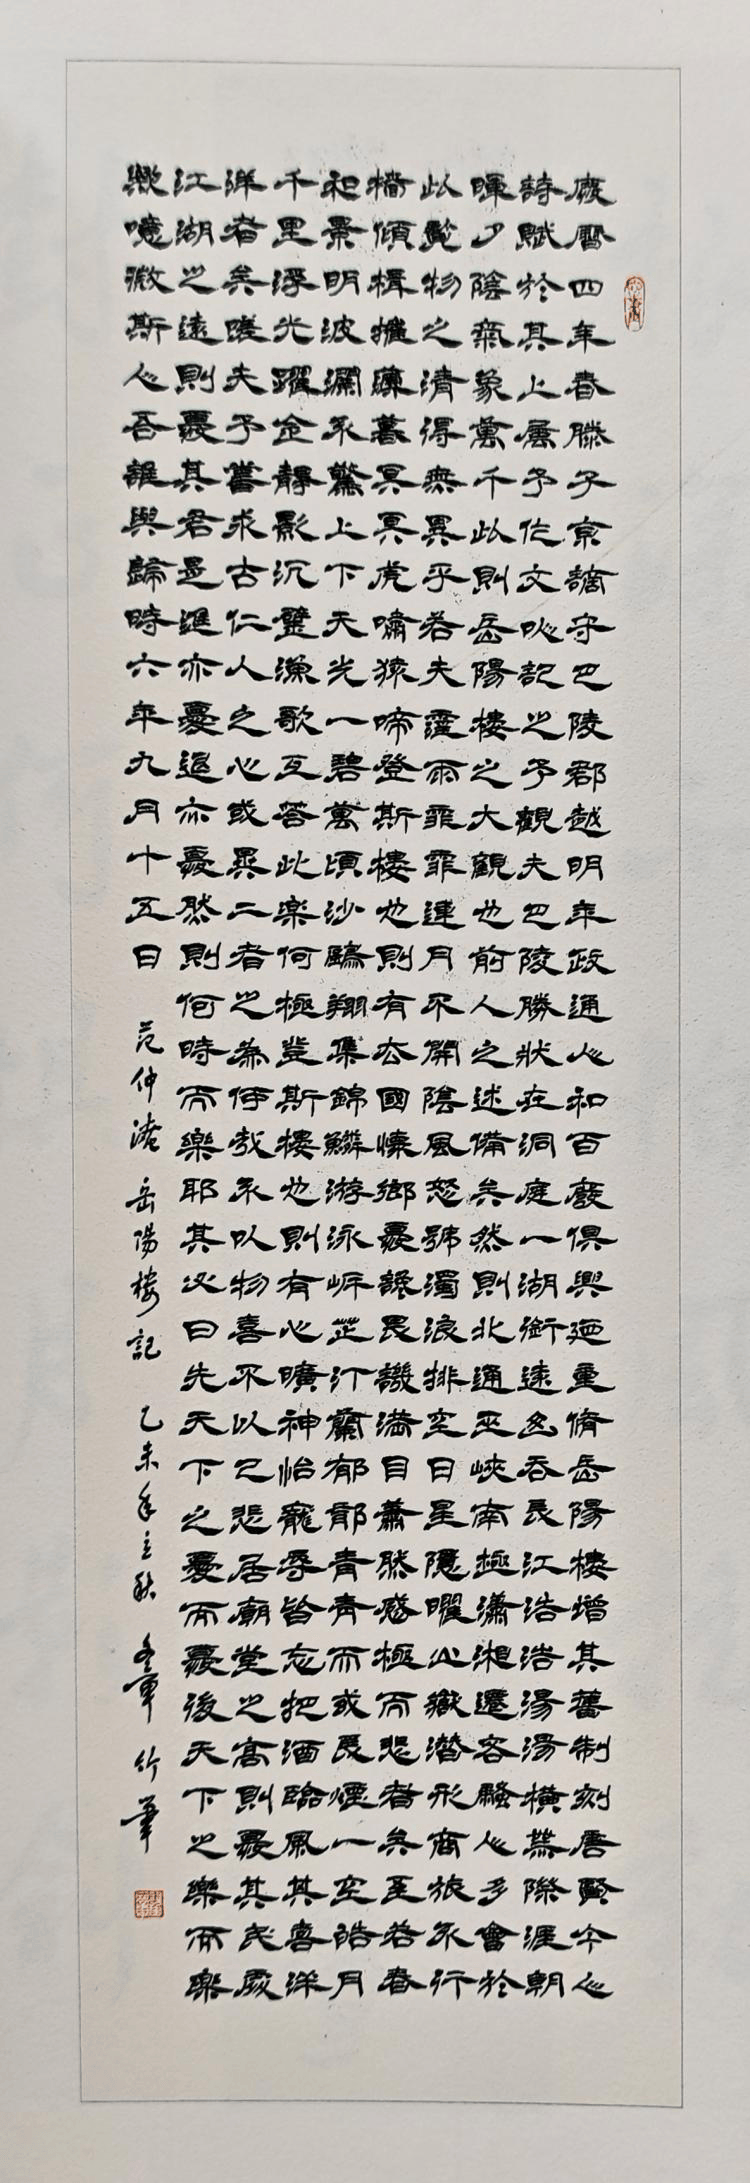 慶曆四年春滕子京謫守巴陵郡越明年政通人和百廢俱興廼重脩岳陽樓增其舊制刻唐賢今人
詩賦於其上屬予作文以記之予觀夫巴陵勝狀在洞庭一湖銜遠山吞長江浩浩湯湯橫無際涯朝
暉夕陰氣象萬千此則岳陽樓之大觀也前人之述備矣然則北通巫峽南極瀟湘遷客騷人多會於
此覽物之情得無異乎若夫霪雨霏霏連月不開陰風怒號濁浪排空日星隱曜山嶽潛形商旅不行
檣傾楫摧薄暮冥冥虎嘯猿啼登斯樓也則有去國懷鄉憂讒畏譏滿目蕭然感極而悲者矣至若春
和景明波瀾不驚上下天光一碧萬頃沙鷗翔集錦鱗游泳岸芷汀蘭郁郁青青而或長煙一空皓月
千里浮光躍金靜影沉璧漁歌互答此樂何極登斯樓也則有心曠神怡寵辱皆忘把酒臨風其喜洋
洋者矣嗟夫予嘗求古仁人之心或異二者之為何哉不以物喜不以己悲居廟堂之高則憂其民處
江湖之遠則憂其君是進亦憂退亦憂然則何時而樂耶其必曰先天下之憂而憂後天下之樂而樂
歟噫微斯人吾誰與歸時六年九月十五日 范仲淹岳陽樓記 乙未年立秋 竹筆